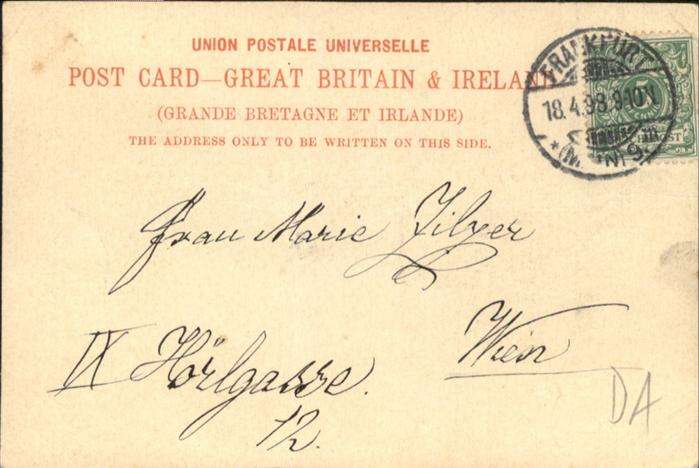 UNION POSTALE UNIVERSELLE
POST CARD—GREAT BRITAIN & IRELAND
(GRANDE BRETAGNE ET IRLANDE)
THE ADDRESS ONLY TO BE WRITTEN ON THIS SIDE.
FRANKFURT
18.4.98.9-10N
*(MAIN) 9*
Frau Marie Zilzer
Wien
IX Hörlgasse.
12.
DA